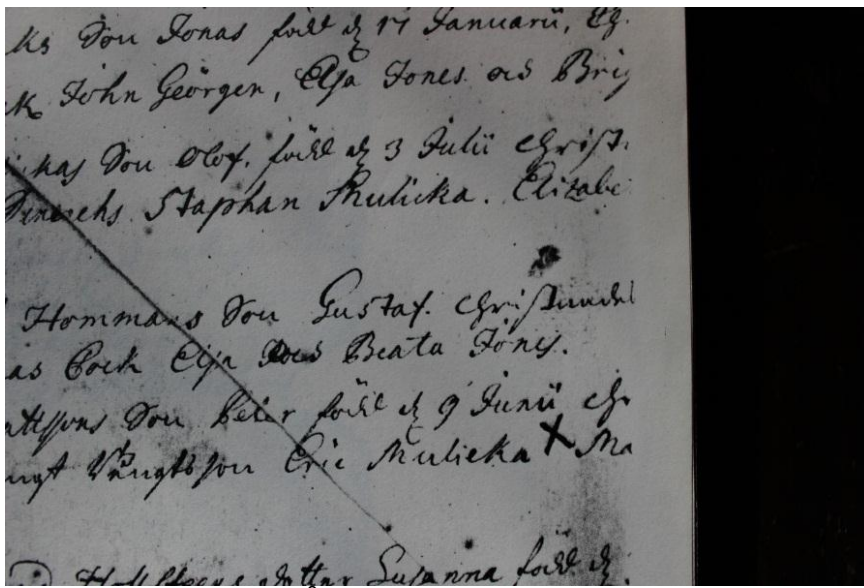 Son Jonas född d 17 Januarii,
John Geörgen, Elja Jones och Brig
kas Son Olof. född d 3 Julii Christ.
Staphan Mulicka. Elizabe
Hommans Son Gustaf. Christnades
as Cock Elja Beata Jones.
Son Peter född d 9 Junii Chr
ngt Bengtsson Eric Mulicka X Ma
dotter Susanna född d